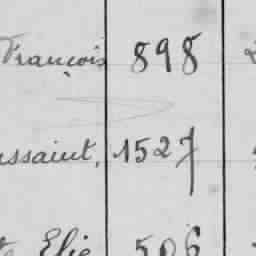 François 898
ussaint, 1527
Elie 506